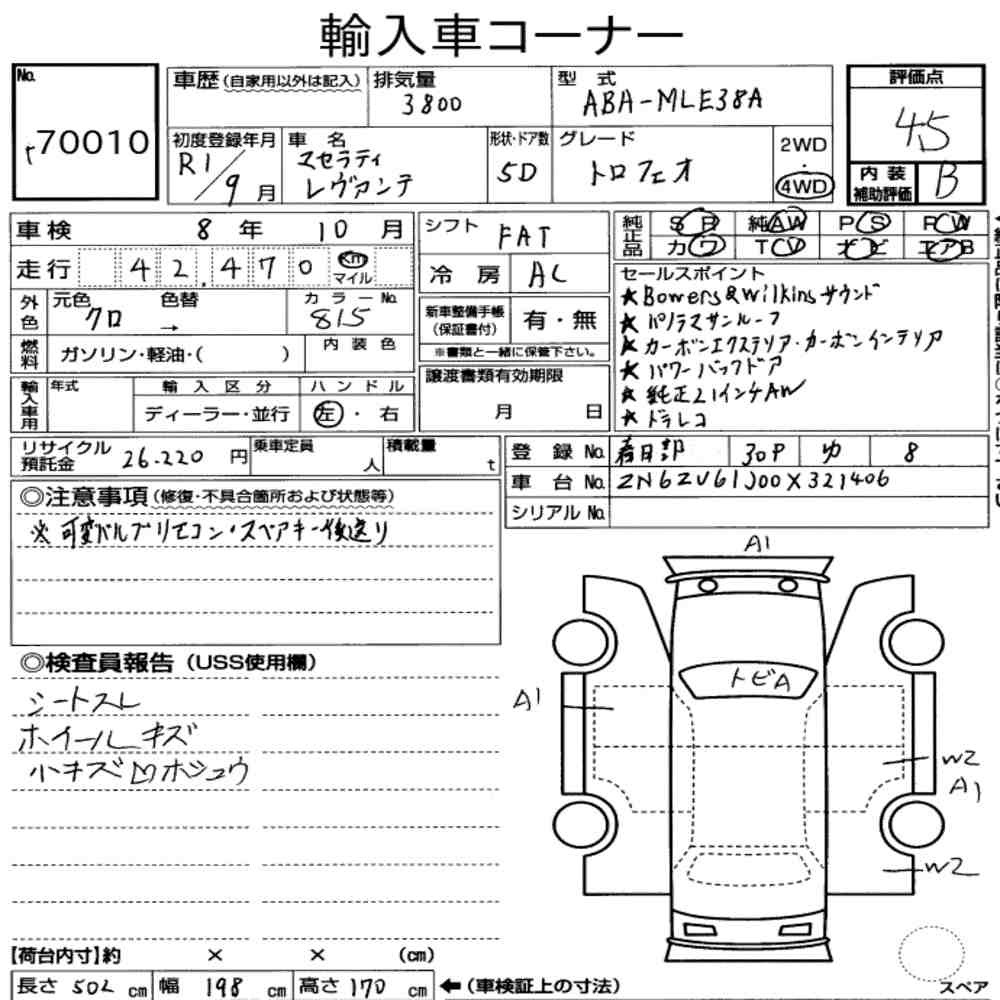 輸入車コーナー
No.
70010
車歴 (自家用以外は記入)
排気量
3800
型 式
ABA-MLE38A
評価点
4.5
内装補助評価
B
初度登録年月
R1/9 月
車 名
マセラティ
レヴァンテ
形状・ドア数
5D
グレード
トロフェオ
2WD
・
4WD
車検 8 年 10 月
走行 42,470 Km マイル
外色 元色 クロ 色替 → カラーNo. 815
燃料 ガソリン・軽油・( ) 内装色
輸入車用 年式 輸入区分 ディーラー・並行 ハンドル 左・右
シフト FAT
冷 房 AC
新車整備手帳(保証書付) 有・無
※書類と一緒に保管下さい。
譲渡書類有効期限
月 日
純正品 SR 純AW PS PW
カワ TV ナビ エアB
セールスポイント
★Bowers&Wilkinsサウンド
★パノラマサンルーフ
★カーボンエクステリア・カーボンインテリア
★パワーバックドア
★純正21インチAW
★ドラレコ
リサイクル預託金 26.220 円
乗車定員 人
積載量 t
登 録 No. 春日部 30P ゆ 8
車 台 No. ZN6ZU61J00X321406
シリアル No.
◎注意事項 (修復・不具合箇所および状態等)
※可変バルブリモコン・スペアキー後送り
◎検査員報告 (USS使用欄)
シートスレ
ホイールキズ
小キズ凹ホシュウ
A1
トビA
A1
W2
A1
W2
【荷台内寸】約 × × (cm)
長さ 502 cm 幅 198 cm 高さ 170 cm ←(車検証上の寸法)
スペア